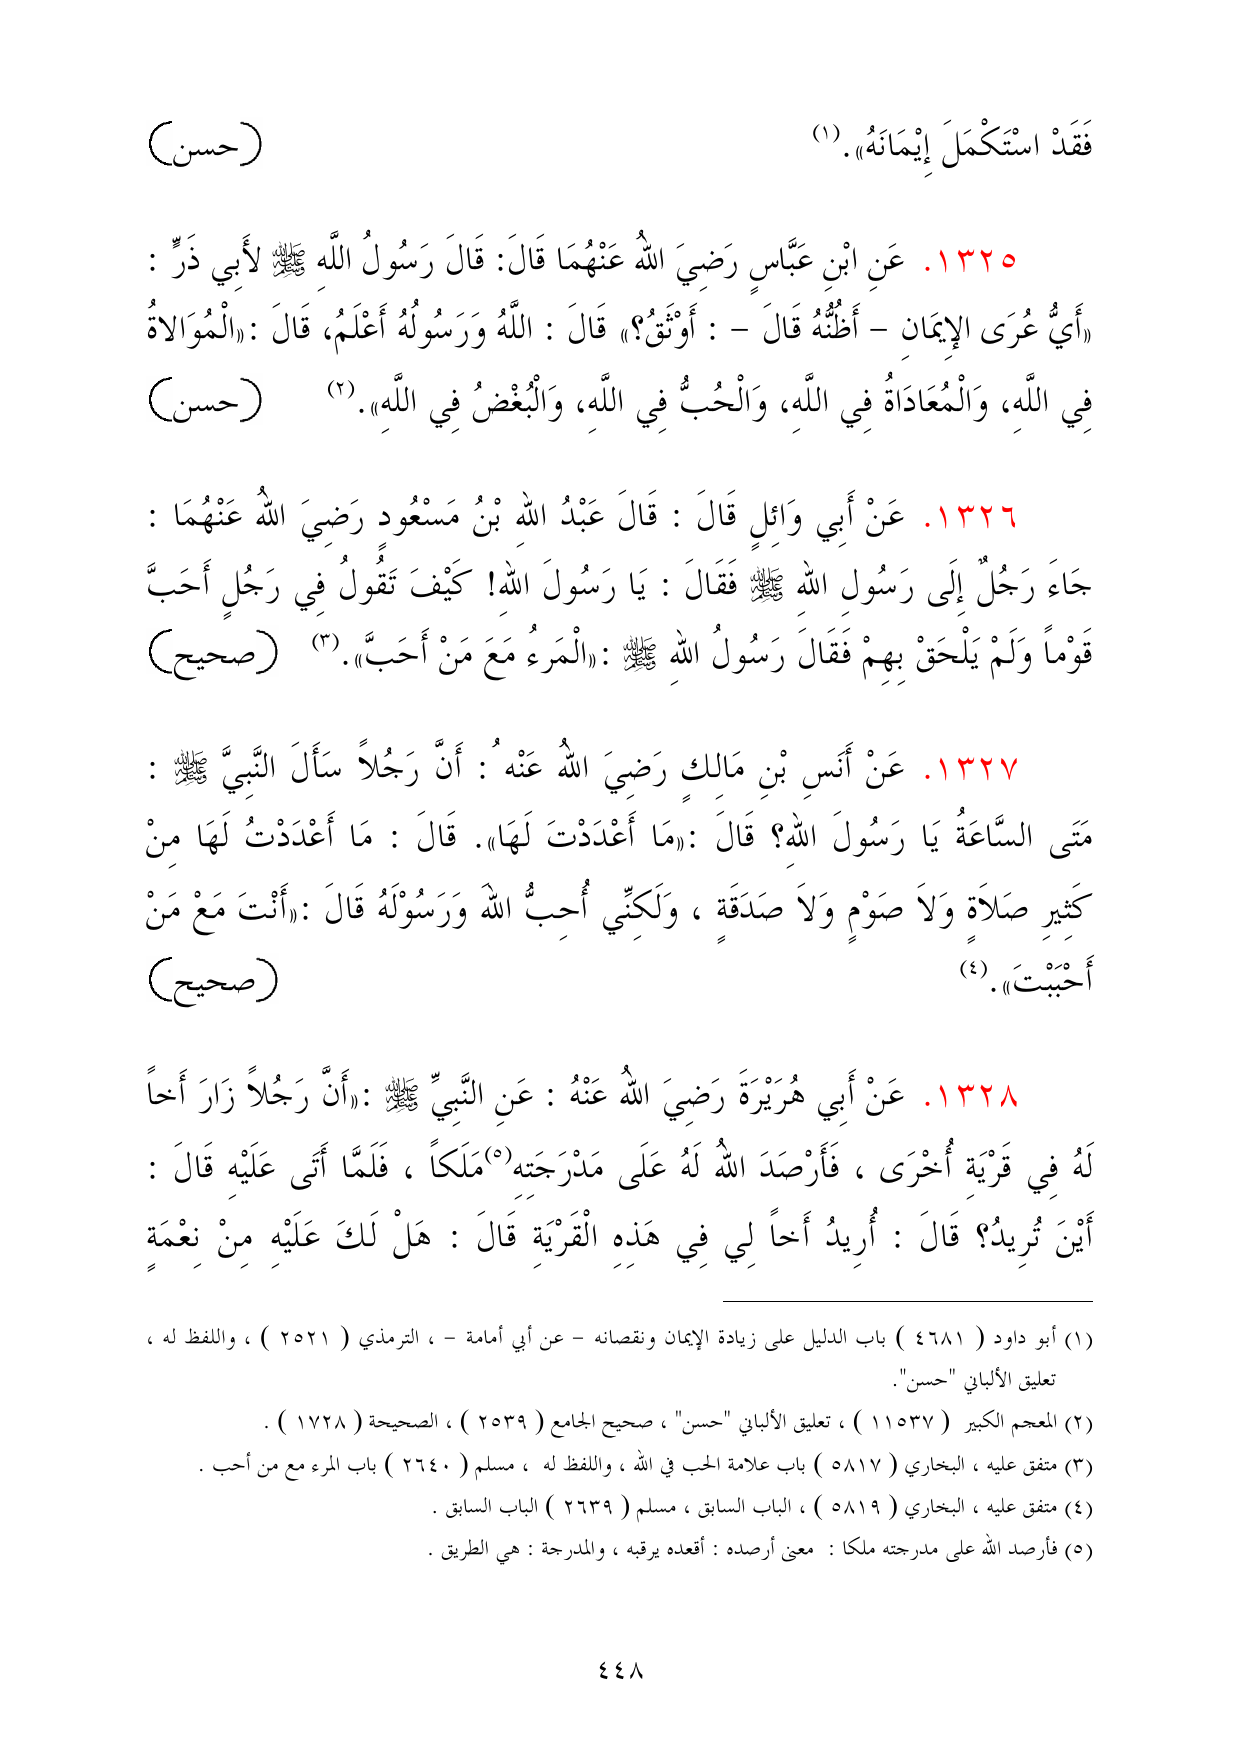 فَقَدْ اسْتَكْمَلَ إِيْمَانَهُ». (١) (حسن)
١٣٢٥. عَنِ ابْنِ عَبَّاسٍ رَضِيَ اللهُ عَنْهُمَا قَالَ: قَالَ رَسُولُ اللَّهِ ﷺ لأَبِي ذَرٍّ :
«أَيُّ عُرَى الإِيمَانِ – أَظُنُّهُ قَالَ – : أَوْثَقُ؟» قَالَ : اللَّهُ وَرَسُولُهُ أَعْلَمُ، قَالَ :«الْمُوَالاةُ
فِي اللَّهِ، وَالْمُعَادَاةُ فِي اللَّهِ، وَالْحُبُّ فِي اللَّهِ، وَالْبُغْضُ فِي اللَّهِ». (٢) (حسن)
١٣٢٦. عَنْ أَبِي وَائِلٍ قَالَ : قَالَ عَبْدُ اللهِ بْنُ مَسْعُودٍ رَضِيَ اللهُ عَنْهُمَا :
جَاءَ رَجُلٌ إِلَى رَسُولِ اللهِ ﷺ فَقَالَ : يَا رَسُولَ اللهِ! كَيْفَ تَقُولُ فِي رَجُلٍ أَحَبَّ
قَوْماً وَلَمْ يَلْحَقْ بِهِمْ فَقَالَ رَسُولُ اللهِ ﷺ :«الْمَرءُ مَعَ مَنْ أَحَبَّ». (٣) (صحيح)
١٣٢٧. عَنْ أَنَسِ بْنِ مَالِكٍ رَضِيَ اللهُ عَنْهُ : أَنَّ رَجُلاً سَأَلَ النَّبِيَّ ﷺ :
مَتَى السَّاعَةُ يَا رَسُولَ اللهِ؟ قَالَ :«مَا أَعْدَدْتَ لَهَا». قَالَ : مَا أَعْدَدْتُ لَهَا مِنْ
كَثِيرِ صَلاَةٍ وَلاَ صَوْمٍ وَلاَ صَدَقَةٍ ، وَلَكِنِّي أُحِبُّ اللهَ وَرَسُوْلَهُ قَالَ :«أَنْتَ مَعْ مَنْ
أَحْبَبْتَ». (٤) (صحيح)
١٣٢٨. عَنْ أَبِي هُرَيْرَةَ رَضِيَ اللهُ عَنْهُ : عَنِ النَّبِيِّ ﷺ :«أَنَّ رَجُلاً زَارَ أَخاً
لَهُ فِي قَرْيَةِ أُخْرَى ، فَأَرْصَدَ اللهُ لَهُ عَلَى مَدْرَجَتِهِ(٥)مَلَكاً ، فَلَمَّا أَتَى عَلَيْهِ قَالَ :
أَيْنَ تُرِيدُ؟ قَالَ : أُرِيدُ أَخاً لِي فِي هَذِهِ الْقَرْيَةِ قَالَ : هَلْ لَكَ عَلَيْهِ مِنْ نِعْمَةٍ
(١) أبو داود ( ٤٦٨١ ) باب الدليل على زيادة الإيمان ونقصانه – عن أبي أمامة – ، الترمذي ( ٢٥٢١ ) ، واللفظ له ،
تعليق الألباني "حسن".
(٢) المعجم الكبير ( ١١٥٣٧ ) ، تعليق الألباني "حسن" ، صحيح الجامع ( ٢٥٣٩ ) ، الصحيحة ( ١٧٢٨ ) .
(٣) متفق عليه ، البخاري ( ٥٨١٧ ) باب علامة الحب في الله ، واللفظ له ، مسلم ( ٢٦٤٠ ) باب المرء مع من أحب .
(٤) متفق عليه ، البخاري ( ٥٨١٩ ) ، الباب السابق ، مسلم ( ٢٦٣٩ ) الباب السابق .
(٥) فأرصد الله على مدرجته ملكا : معنى أرصده : أقعده يرقبه ، والمدرجة : هي الطريق .
٤٤٨